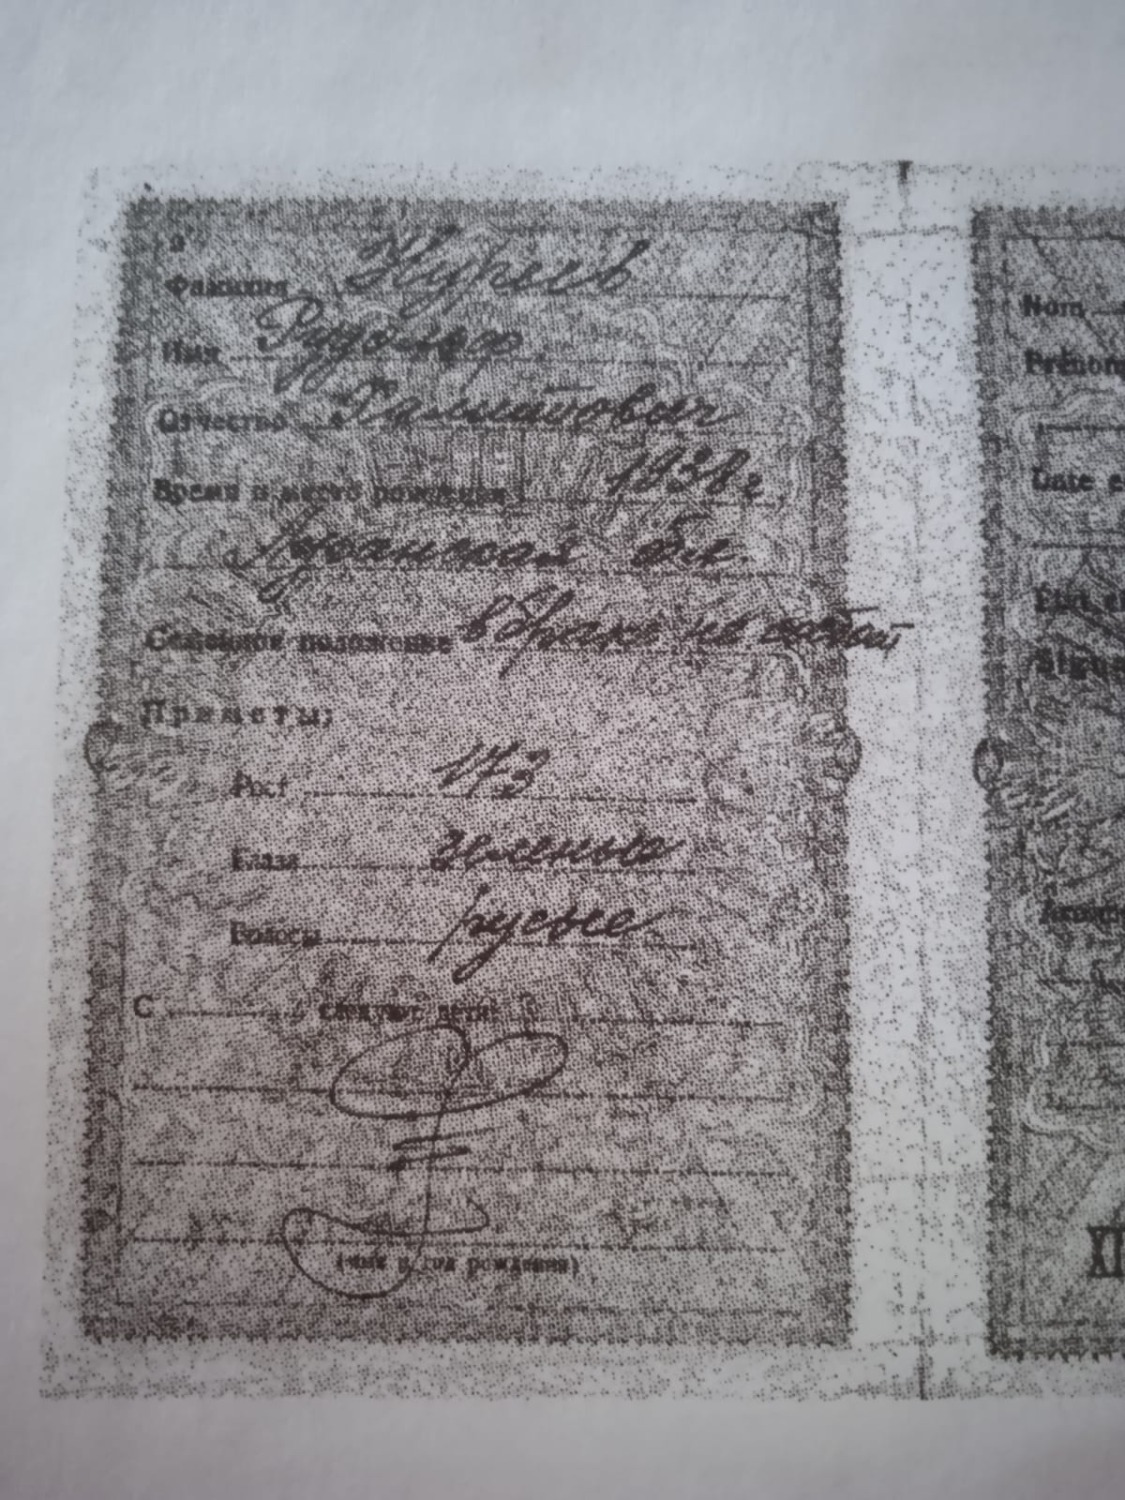 Фамилия Нуриев
Имя Рудольф
Отчество Хамитович
Время и место рождения 1938 г.
обл.
Семейное положение в браке не состоит
Приметы:
Рост 173
Глаза зеленые
Волосы русые
С следуют дети:
(имя и год рождения)
Nom
Prénom
Date e